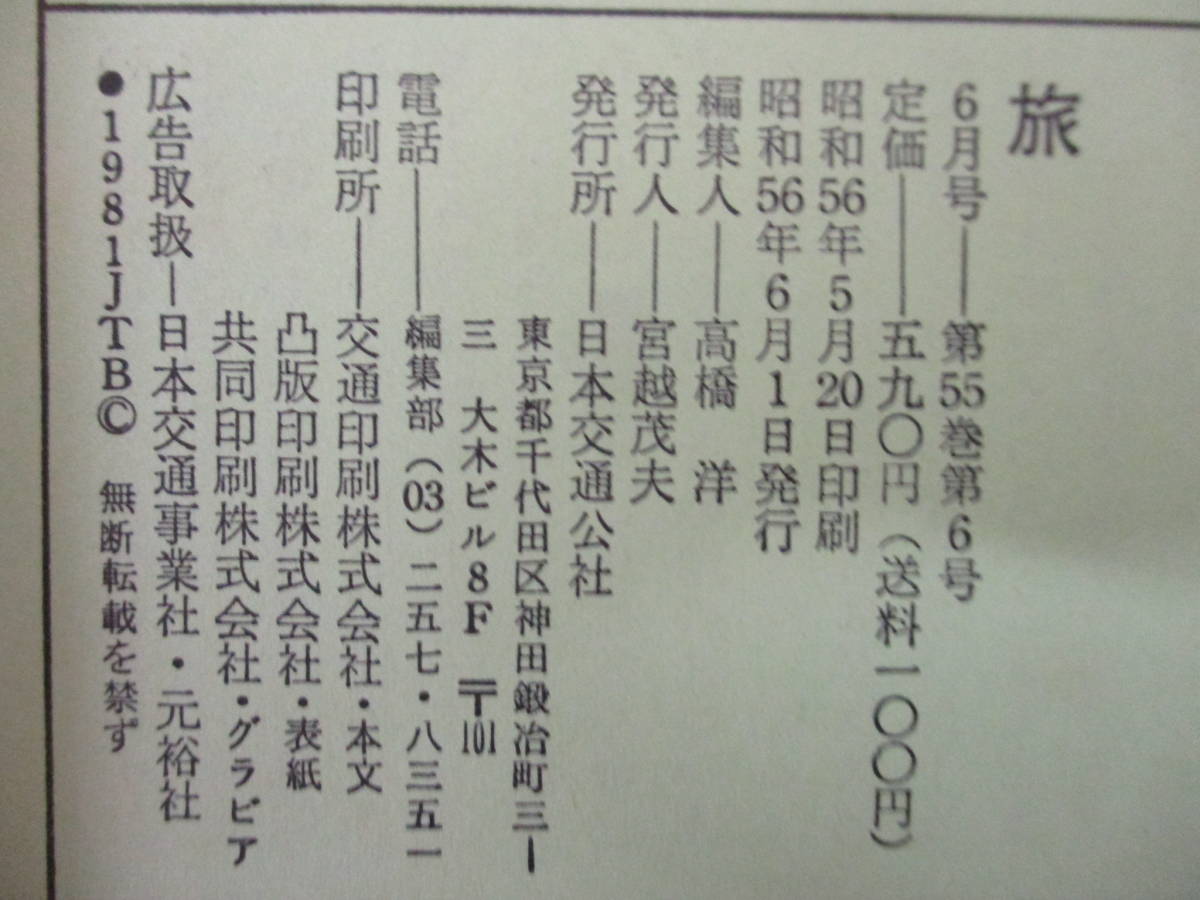 旅
6月号——第55巻第6号
定価———五九〇円（送料一〇〇円）
昭和56年5月20日印刷
昭和56年6月1日発行
編集人——高橋　洋
発行人——宮越茂夫
発行所——日本交通公社
東京都千代田区神田鍛冶町三—
三　大木ビル8F　〒101
電話———編集部（03）二五七・八三五一
印刷所——交通印刷株式会社・本文
凸版印刷株式会社・表紙
共同印刷株式会社・グラビア
広告取扱—日本交通事業社・元裕社
●1981JTB©　無断転載を禁ず